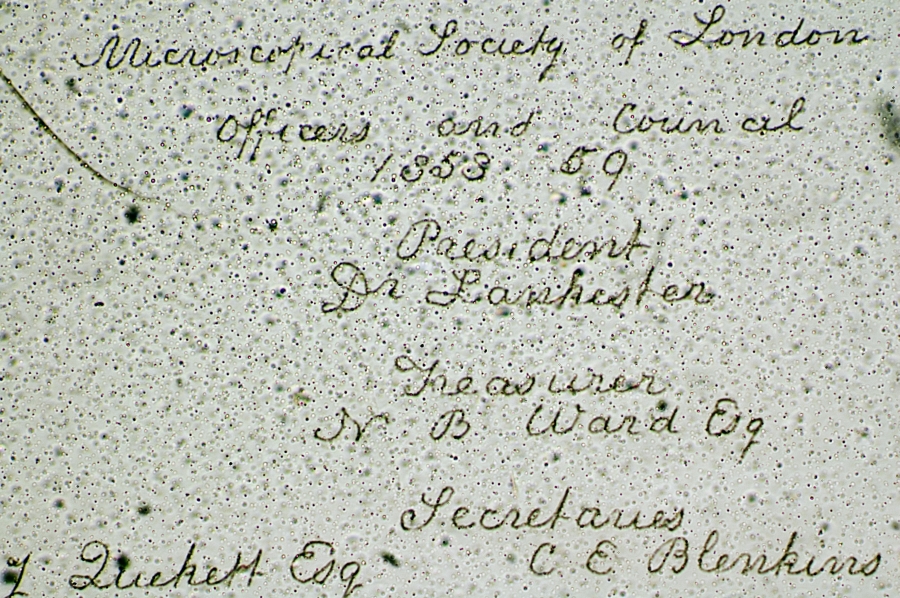 Microscopical Society of London
Officers and Council
1858 59
President
Dr Lankester
Treasurer
N B Ward Esq
Secretaries
J Quekett Esq C E Blenkins